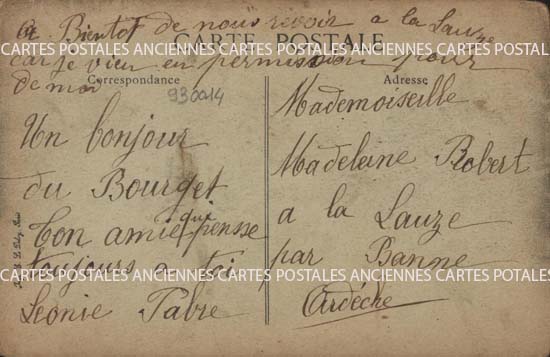 A Bientot de nous revoir a la Lauze
CARTE POSTALE
CARTES POSTALES ANCIENNES CARTES POSTALES ANCIENNES CARTES POSTALES ANCIENNES CARTES POTALES
car je vien en permission pour
de moi
Correspondance
930014
Un bonjour
du Bourget
Ton amie qui pensse
toujours a toi
Leonie Fabre
Adresse
Mademoiselle
Madeleine Robert
a la Lauze
par Banne
CARTES POSTALES ANCIENNES CARTES POSTALES ANCIENNES CARTES POSTALES ANCIENNES CARTES POTALES
Ardèche